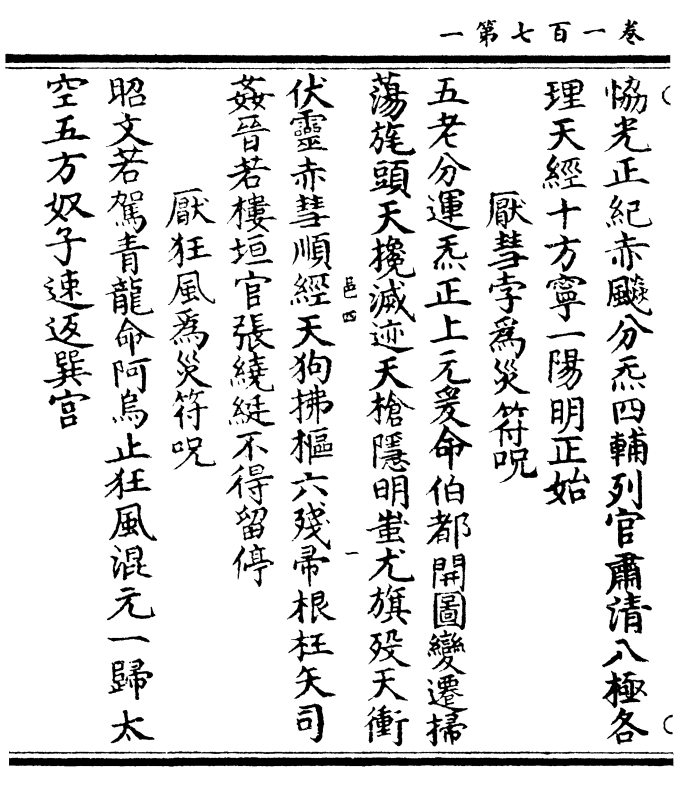 卷一百七第一
恊光正紀赤飈分炁四輔列官肅清八極各
理天經十方寧一陽明正始
厭彗孛為災符呪
五老分運炁正上元爰命伯都開圖變遷掃
蕩旄頭天攙滅迹天槍隱明蚩尤旗殁天衝
邑四
一
伏靈赤彗順經天狗拂樞六殘帚根枉矢司
姦晉若樓垣官張繞綎不得留停
厭狂風為災符呪
昭文若駕青龍命阿烏止狂風混元一歸太
空五方奴子速返巽宫